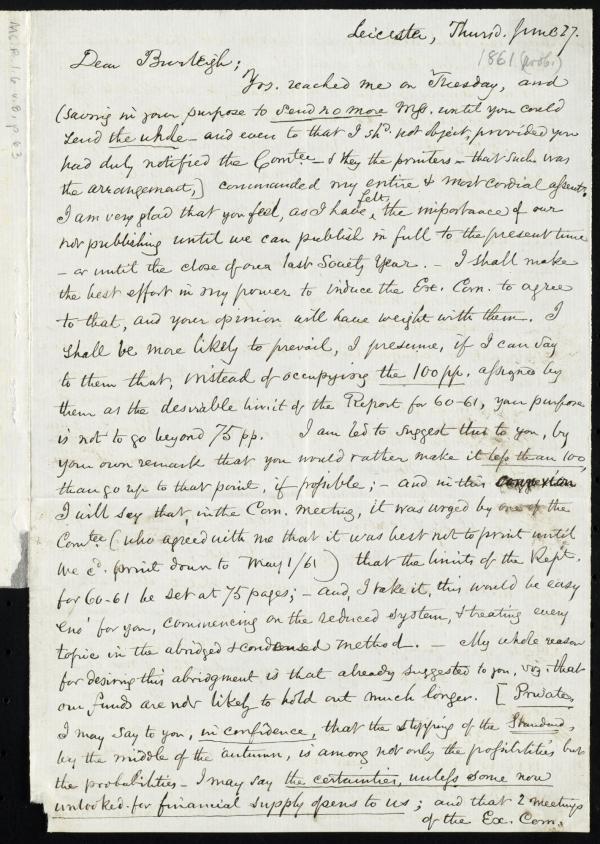 Leicester, Thursd. June 27.
1861 (prob.)
Dear Burleigh;
Yrs. reached me on Tuesday, and
(saving in your purpose to send no more Mss. until you could
send the whole – and even to that I shd. not object, provided you
had duly notified the Comtee & they the printers – that such was
the arrangement,) commanded my entire & most cordial assent.
I am very glad that you feel, as I have felt, the importance of our
not publishing until we can publish in full to the present time
– or until the close of our last Society Year. – I shall make
the best effort in my power to induce the Ex. Com. to agree
to that, and your opinion will have weight with them. I
shall be more likely to prevail, I presume, if I can say
to them that, instead of occupying the 100 pp. assigned by
them as the desirable limit of the Report for 60-61, your purpose
is not to go beyond 75 pp. I am led to suggest this to you, by
your own remark that you would rather make it less than 100,
than go up to that point, if possible; – and in this connexion
I will say that, in the Com. meeting, it was urged by one of the
Comtee (who agreed with me that it was best not to print until
we cd. print down to May 1/61) that the limits of the Rept.
for 60-61 be set at 75 pages; – and, I take it, this would be easy
eno' for you, commencing on the reduced system, & treating every
topic in the abridged & condensed method. – My whole reason
for desiring this abridgment is that already suggested to you, viz. that
our funds are not likely to hold out much longer. [Private,
I may say to you, in confidence, that the stopping of the Standard,
by the middle of the autumn, is among not only the possibilities but
the probabilities – I may say the certainties, unless some now
unlooked-for financial supply opens to us; and that 2 meetings
of the Ex. Com.